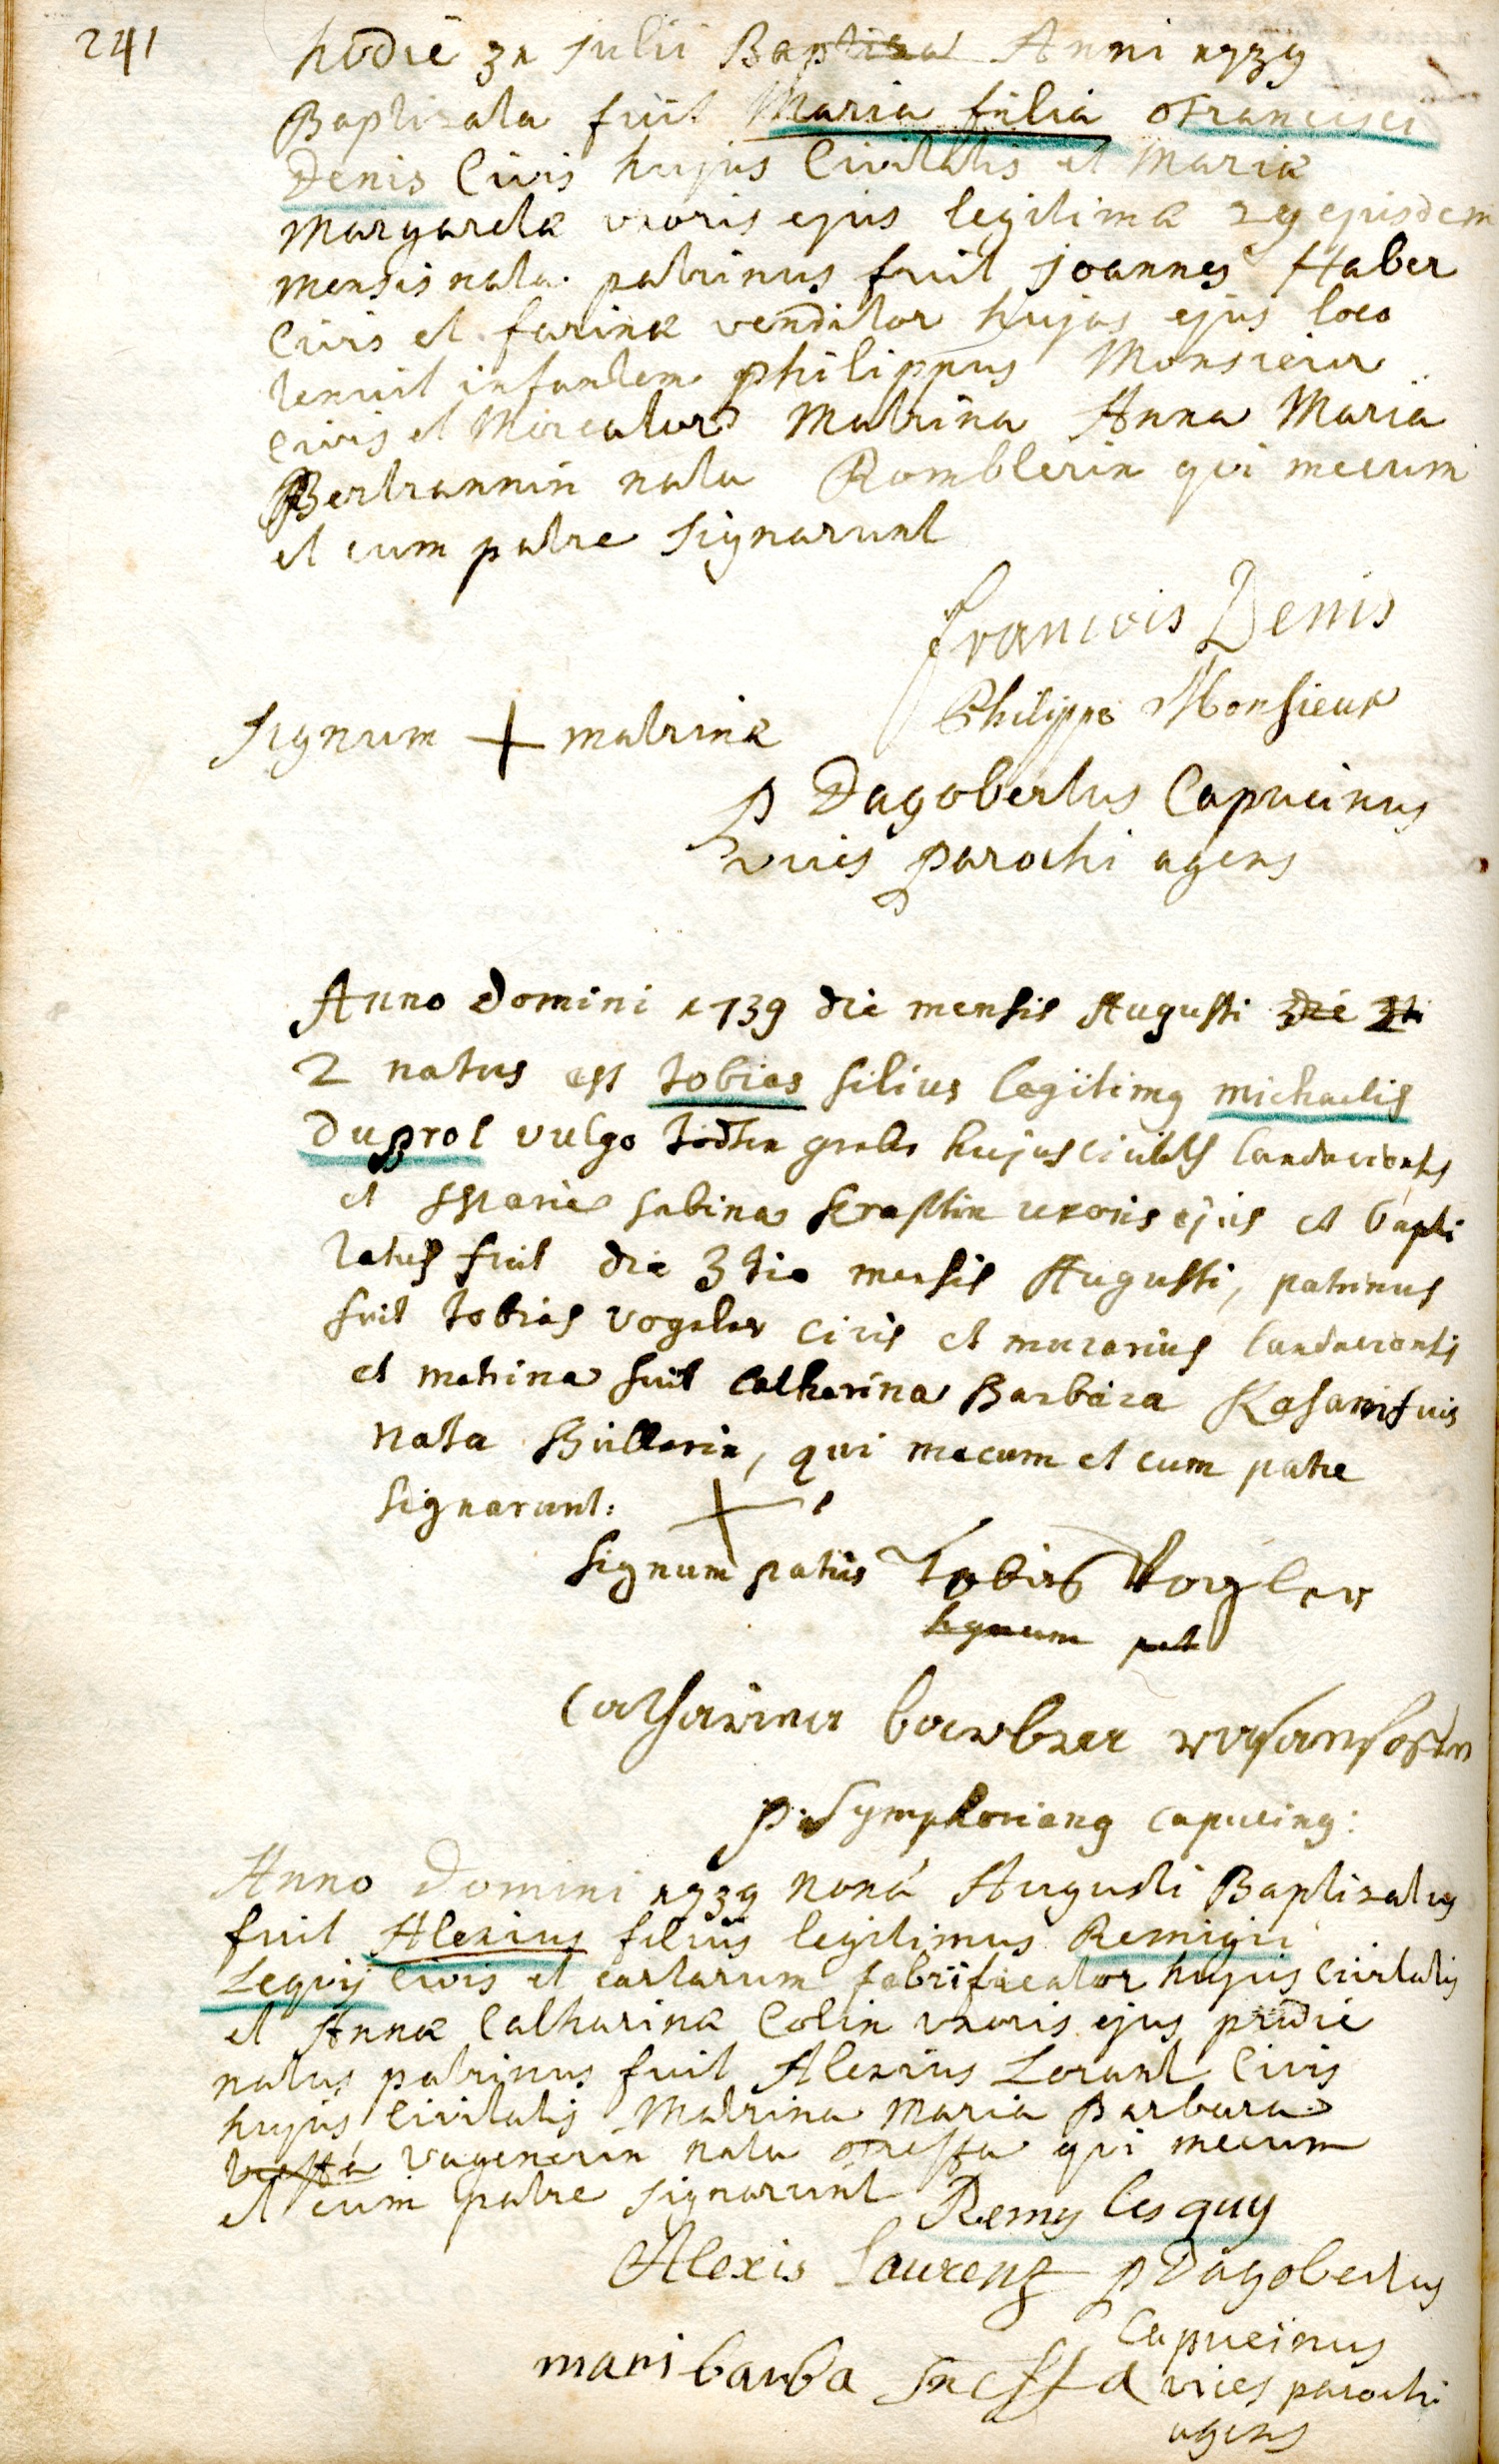 241
hodie 31 Julii Baptiza Anni 1739
Baptizata fuit Maria filia Francisci
Denis Civis hujus Civitatis et Mariæ
Margaretæ uxoris ejus legitimæ 29 ejusdem
mensis nata. patrinus fuit joannes Haber
Civis et farinæ venditor hujas ejus loco
tenuit infantem philippus Monsieur
civis et Mercator Matrina Anna Maria
Bertrannin nata Romblerin qui mecum
et cum patre signarunt
francois Denis
Philippe Monsieur
signum + matrinæ
p Dagobertus Capucinus
vices parochi agens
Anno domini 1739 die mensis Augusti die 3ti
2 natus est tobias filius legitimg michaelis
Duprol vulgo hujus civitatis landaviensis
et Mariæ sabina uxoris ejus et bapti
zatus fuit die 3tia mensis Augusti, patrinus
fuit tobias vogeler civis et murarius landaviensis
et matrina fuit Catharina Barbara
nata Büllerin, qui mecum et cum patre
signarunt: +
signum patris Tobias Vogler
signum pat
Catharina barbrea
p. Symphoriang capucing:
Anno Domini 1739 nona Augusti Baptizatus
fuit Alexius filius legitimus Remigii
Leguy civis et cartarum fabrifacator hujus Civitatis
et Annæ Catharinæ Colin uxoris ejus pridie
natus patrinus fuit Alexius Lorant Civis
hujus Civitatis Matrina Maria Barbara
Vagenerin nata qui mecum
et cum patre signarunt Remy les guy
Alexis Laurent p Dagobertus
Capucinus
mari barba vices parochi
agens